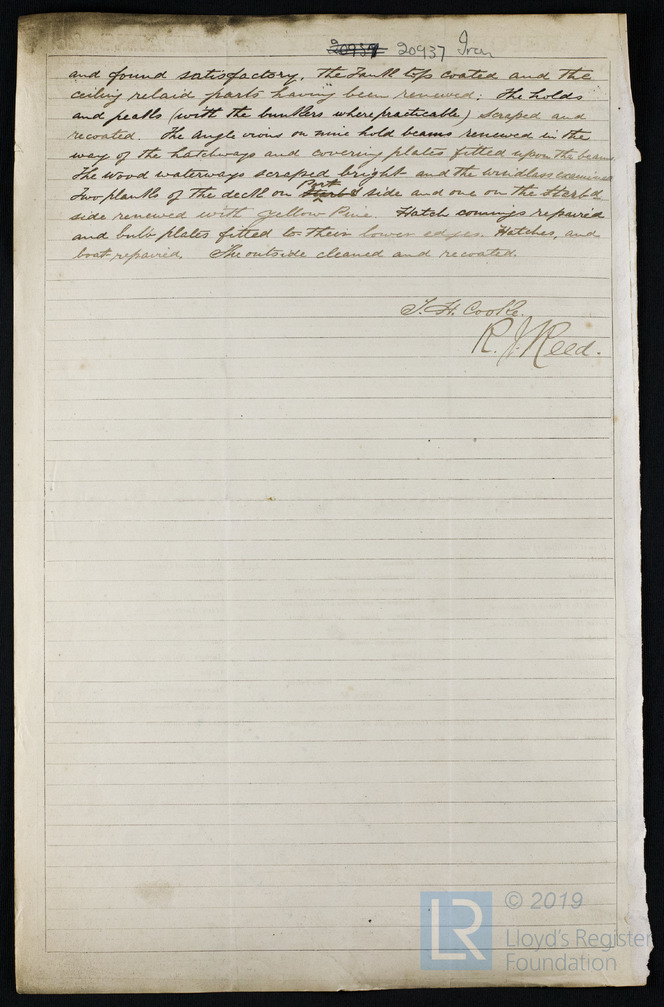 20937 20937 Iron
and found satisfactory, the Tank tops coated and the
ceiling relaid parts having been renewed; The holds
and peaks (with the bunkers where practicable) scraped and
recoated. The angle irons on nine hold beams renewed in the
way of the hatchways and covering plates fitted upon the beams,
The wood waterways scraped bright and the windlass examined
Port
Two planks of the deck on Starbd side and one on the Starbd
side renewed with Yellow Pine. Hatch comings repaired
and bulb plates fitted to their lower edges. Hatches, and
boat repaired. The outside cleaned and recoated.
T. H. Cooke.
R. J. Reed.
© 2019
LR
Lloyd's Register
Foundation